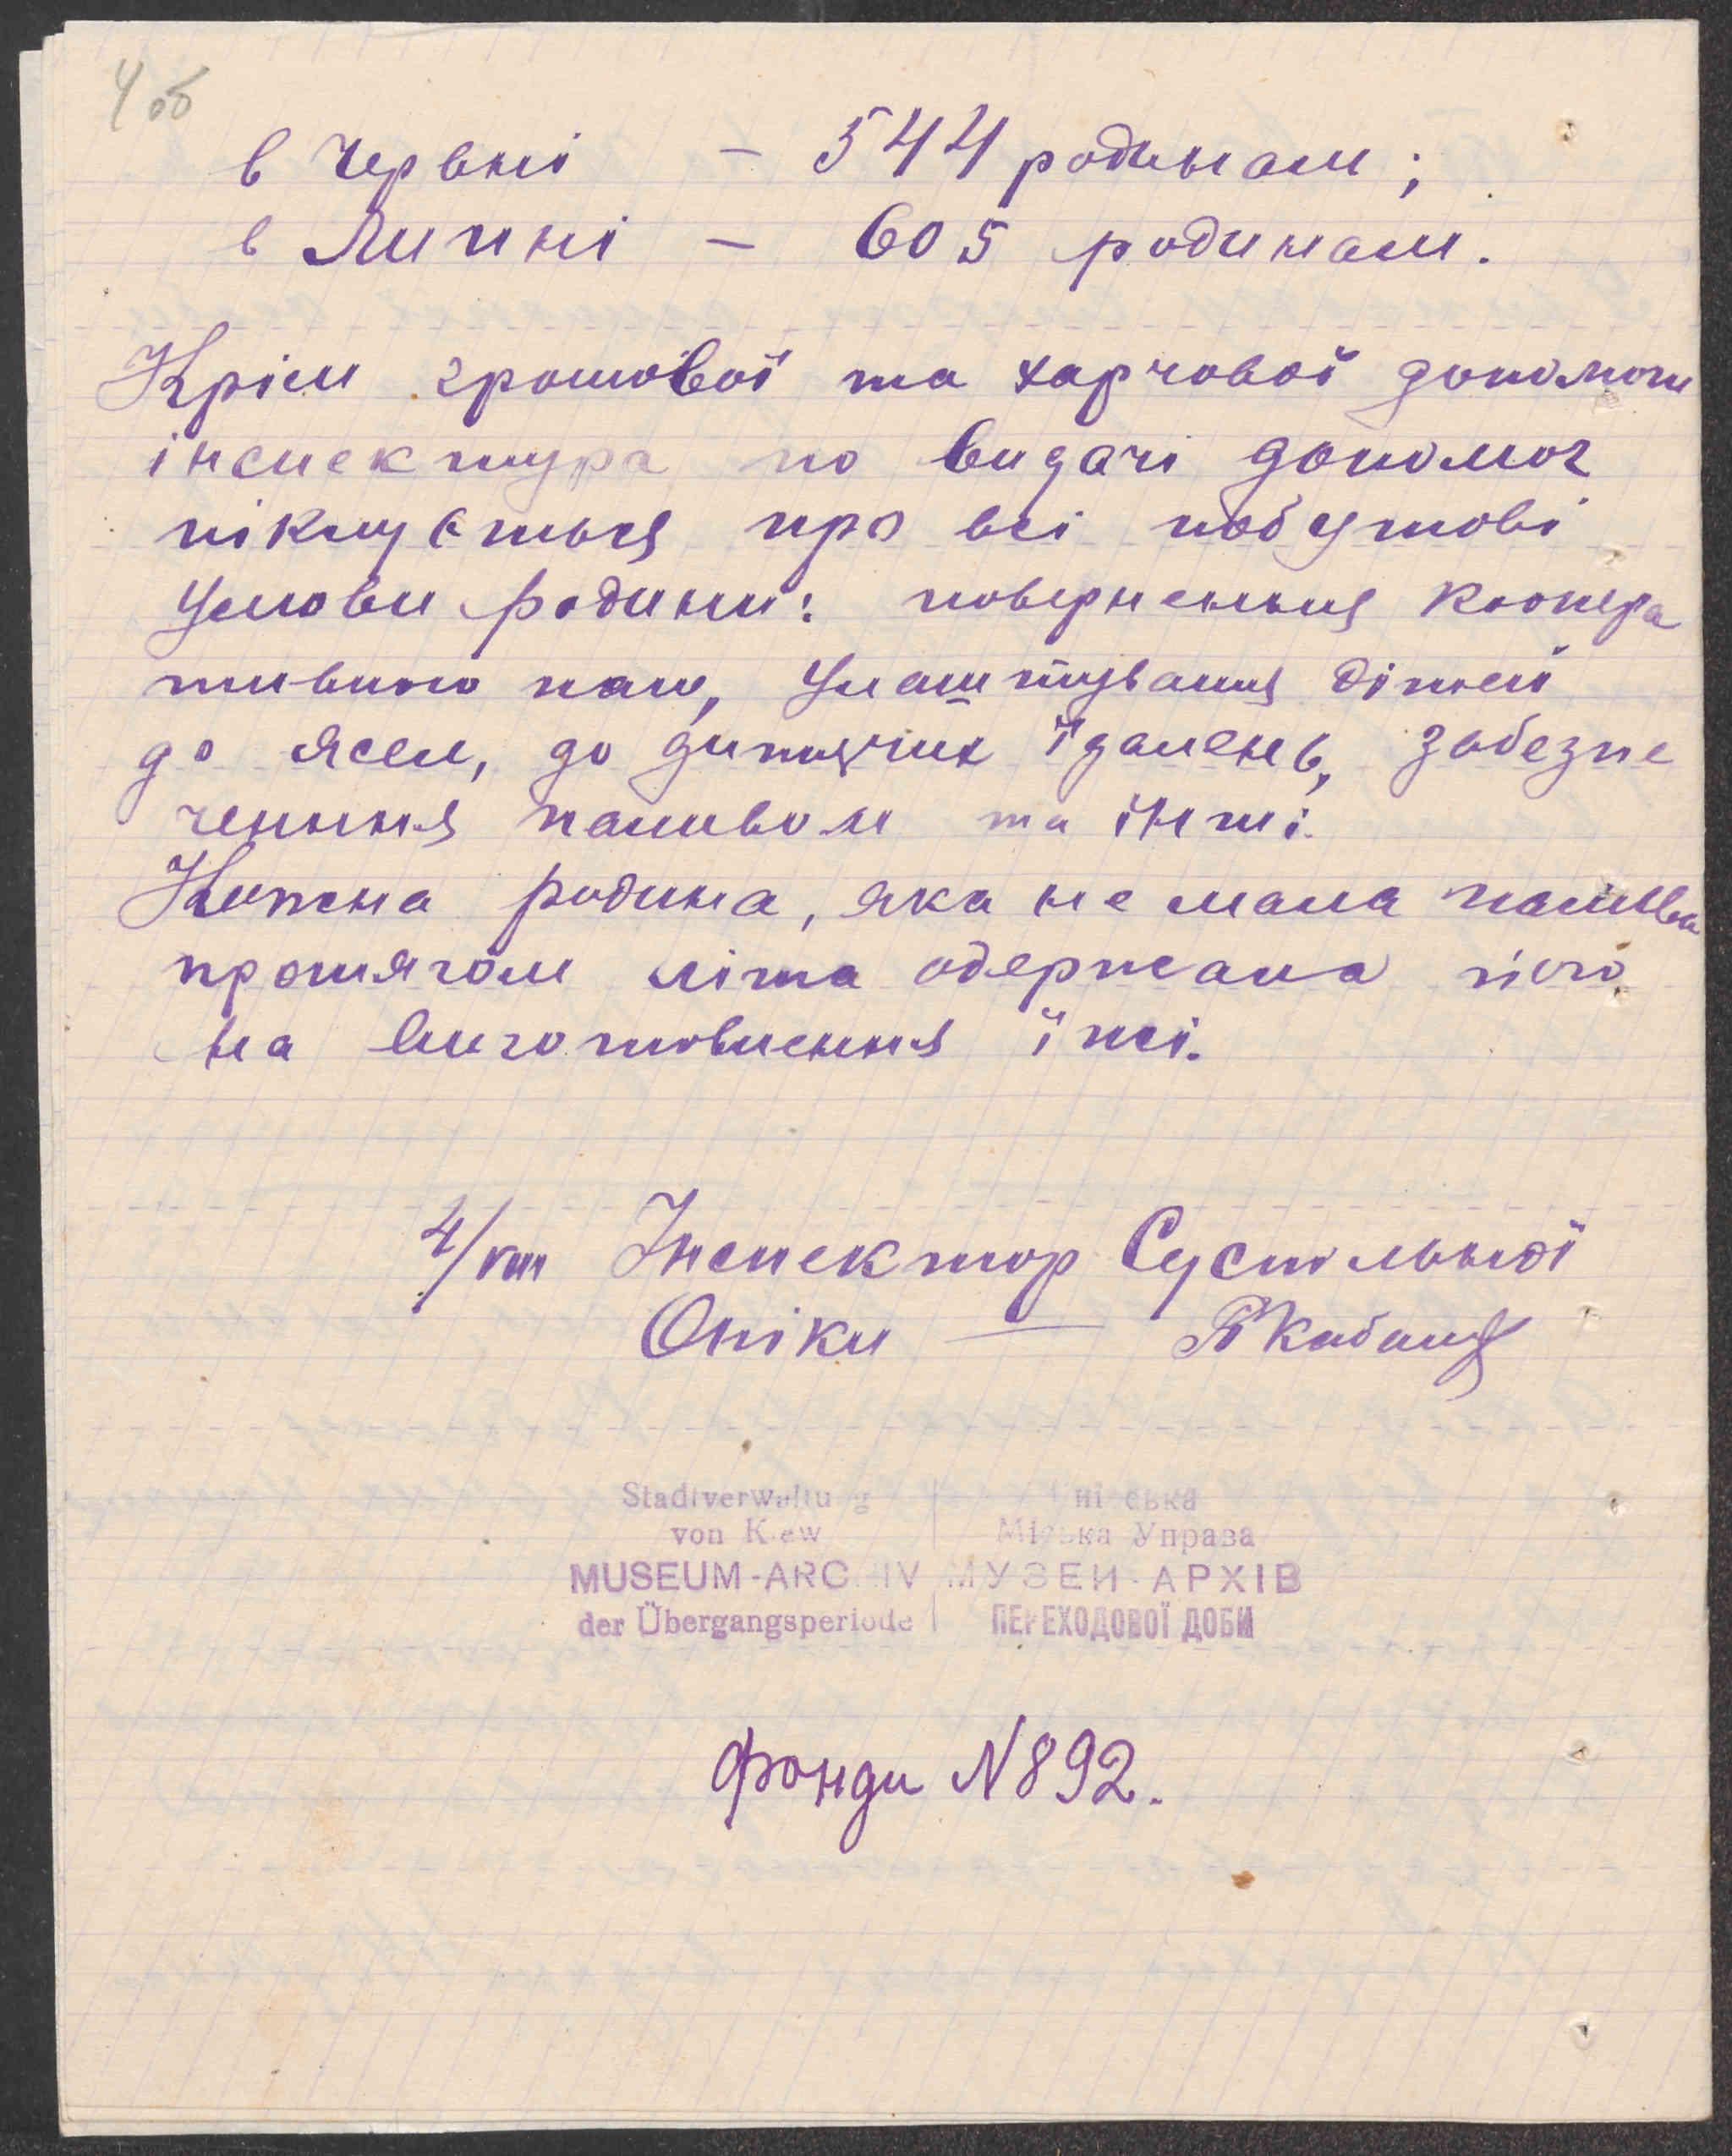 4 об
в Червні – 544 родинам;
в Липні – 605 родинам.
Крім грошової та харчової допомоги
інспектура по видачі допомог
піклується про всі побутові
умови родини: повернення коопера
тивного паю, улаштування дітей
до ясел, до дитячих їдалень, забезпе
чення паливом та інші.
Кожна родина, яка не мала палива
протягом літа одержала його
на виготовлення їжі.
4/VIII Інспектор Суспільної
Опіки —
Stadtverwaltung
von Kiew
MUSEUM-ARCHIV
der Übergangsperiode
Міська Управа
МУЗЕЙ-АРХІВ
ПЕРЕХОДОВОЇ ДОБИ
Фонди N 892.